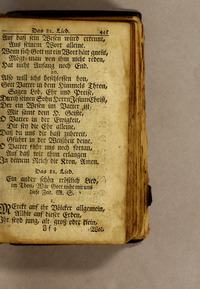 Das 81. Lied.
Auf daß sein Wesen würd erkennt,
Aus seinem Wort alleine.
Wenn sich Gott mit ein Wort hätt gneñt,
Mögt man von ihm nicht reden,
Hat nicht Anfang noch End.
Also will ichs beschlossen hon,
Gott Vatter in dem Himmels Thron,
Sagen Lob, Ehr und Preise,
Durch seinen Sohn HerrnJesumChrist,
Der ein Wesen im Vatter ist,
Mit samt dem H. Geiste,
O Vatter in der Ewigkeit,
Dir sey die Ehr alleine,
Daß du uns die hast zubereit,
O Vatter führ uns noch fortan,
Auf daß wir ihm erlangen
In deinem Reich die Kron, Amen.
Das 82. Lied.
Ein ander schön tröstlich Lied,
im Thon, Wär Gott nicht mit uns
diese Zeit. M. S.
1.
MErckt auf ihr Völcker allgemein,
Allhie auf dieser Erden,
Ihr seyd jung, alt groß oder klein,